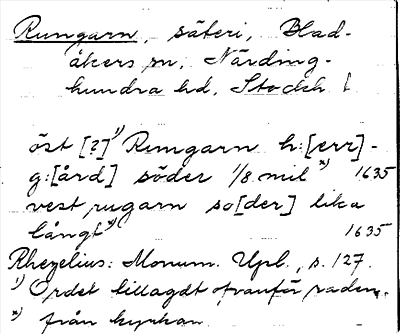 Rungarn, säteri, Blad-
åkers sn, Närding-
hundra hd, Stockh l
öst [?]¹⁾ Rungarn h:[err]-
g:[ård] söder 1/8 mil ²⁾ 1635
vest rugarn sö[der] lika
långt ²⁾ 1635
Rhezelius: Monum. Upl., s. 127.
¹⁾ Ordet tillagdt ofvanför raden.
²⁾ från kyrkan.